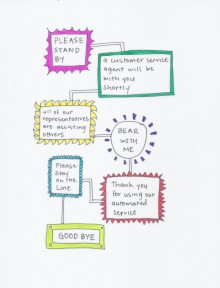 PLEASE
STAND
BY
a customer service
agent will be
with you
shortly
all of our
representatives
are assisting
others
BEAR
WITH
ME
Please
stay
on the
Line
Thank you
for using our
automated
service
GOOD BYE